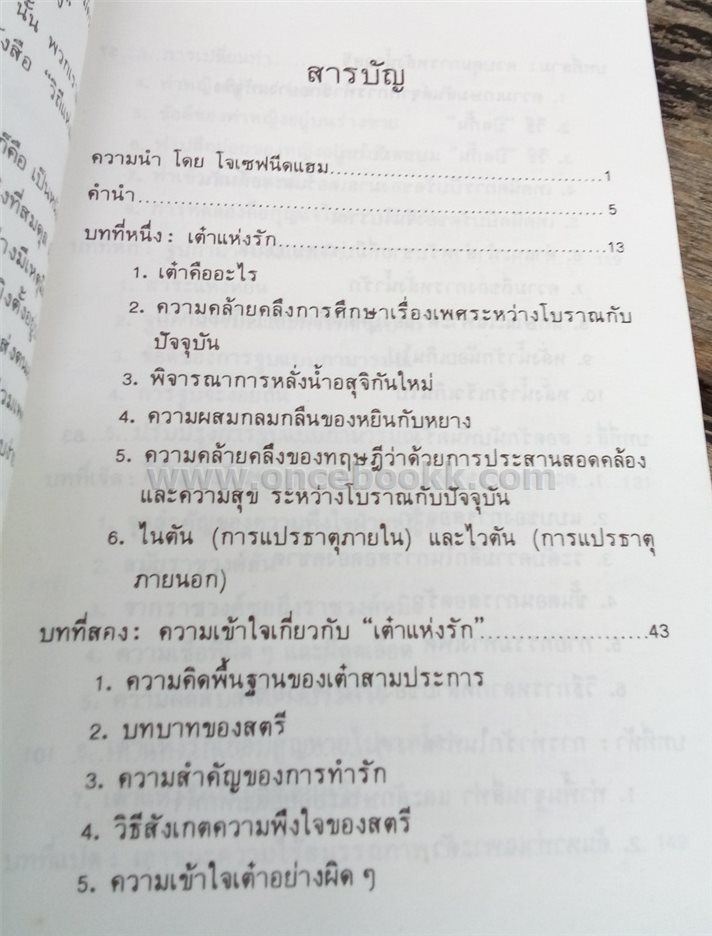 นั้น พวกเร
สารบัญ
ความนำ โดย โจเซฟนีดแฮม...............................1
คำนำ.......................................................5
บทที่หนึ่ง: เต๋าแห่งรัก.....................................13
1. เต๋าคืออะไร
2. ความคล้ายคลึงการศึกษาเรื่องเพศระหว่างโบราณกับ
ปัจจุบัน
3. พิจารณาการหลั่งน้ำอสุจิกันใหม่
4. ความผสมกลมกลืนของหยินกับหยาง
5. ความคล้ายคลึงของทฤษฎีว่าด้วยการประสานสอดคล้อง
และความสุข ระหว่างโบราณกับปัจจุบัน
www.oncebookk.com
6. ไนตัน (การแปรธาตุภายใน) และไวตัน (การแปรธาตุ
ภายนอก)
บทที่สอง: ความเข้าใจเกี่ยวกับ “เต๋าแห่งรัก”....................43
1. ความคิดพื้นฐานของเต๋าสามประการ
2. บทบาทของสตรี
3. ความสำคัญของการทำรัก
4. วิธีสังเกตความพึงใจของสตรี
5. ความเข้าใจเต๋าอย่างผิด ๆ